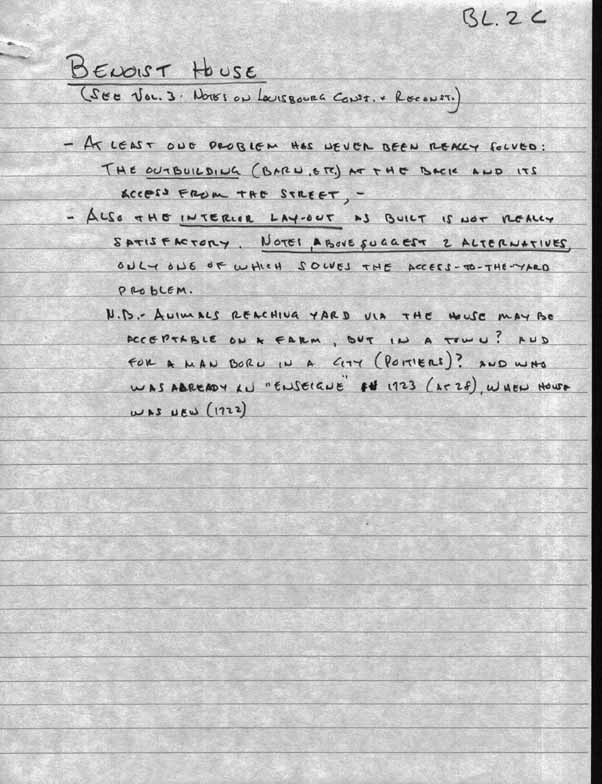 BL. 2 C
BENOIST HOUSE
(SEE VOL. 3. NOTES ON LOUISBOURG CONST. & RECONST.)
- AT LEAST ONE PROBLEM HAS NEVER BEEN REALLY SOLVED:
THE OUTBUILDING (BARN, ETC) AT THE BACK AND ITS
ACCESS FROM THE STREET, -
- ALSO THE INTERIOR LAY-OUT AS BUILT IS NOT REALLY
SATISFACTORY. NOTES ABOVE SUGGEST 2 ALTERNATIVES,
ONLY ONE OF WHICH SOLVES THE ACCESS-TO-THE-YARD
PROBLEM.
N.B.- ANIMALS REACHING YARD VIA THE HOUSE MAY BE
ACCEPTABLE ON A FARM, BUT IN A TOWN? AND
FOR A MAN BORN IN A CITY (POITIERS)? AND WHO
WAS ALREADY AN "ENSEIGNE" IN 1723 (AT 28), WHEN HOUSE
WAS NEW (1722)